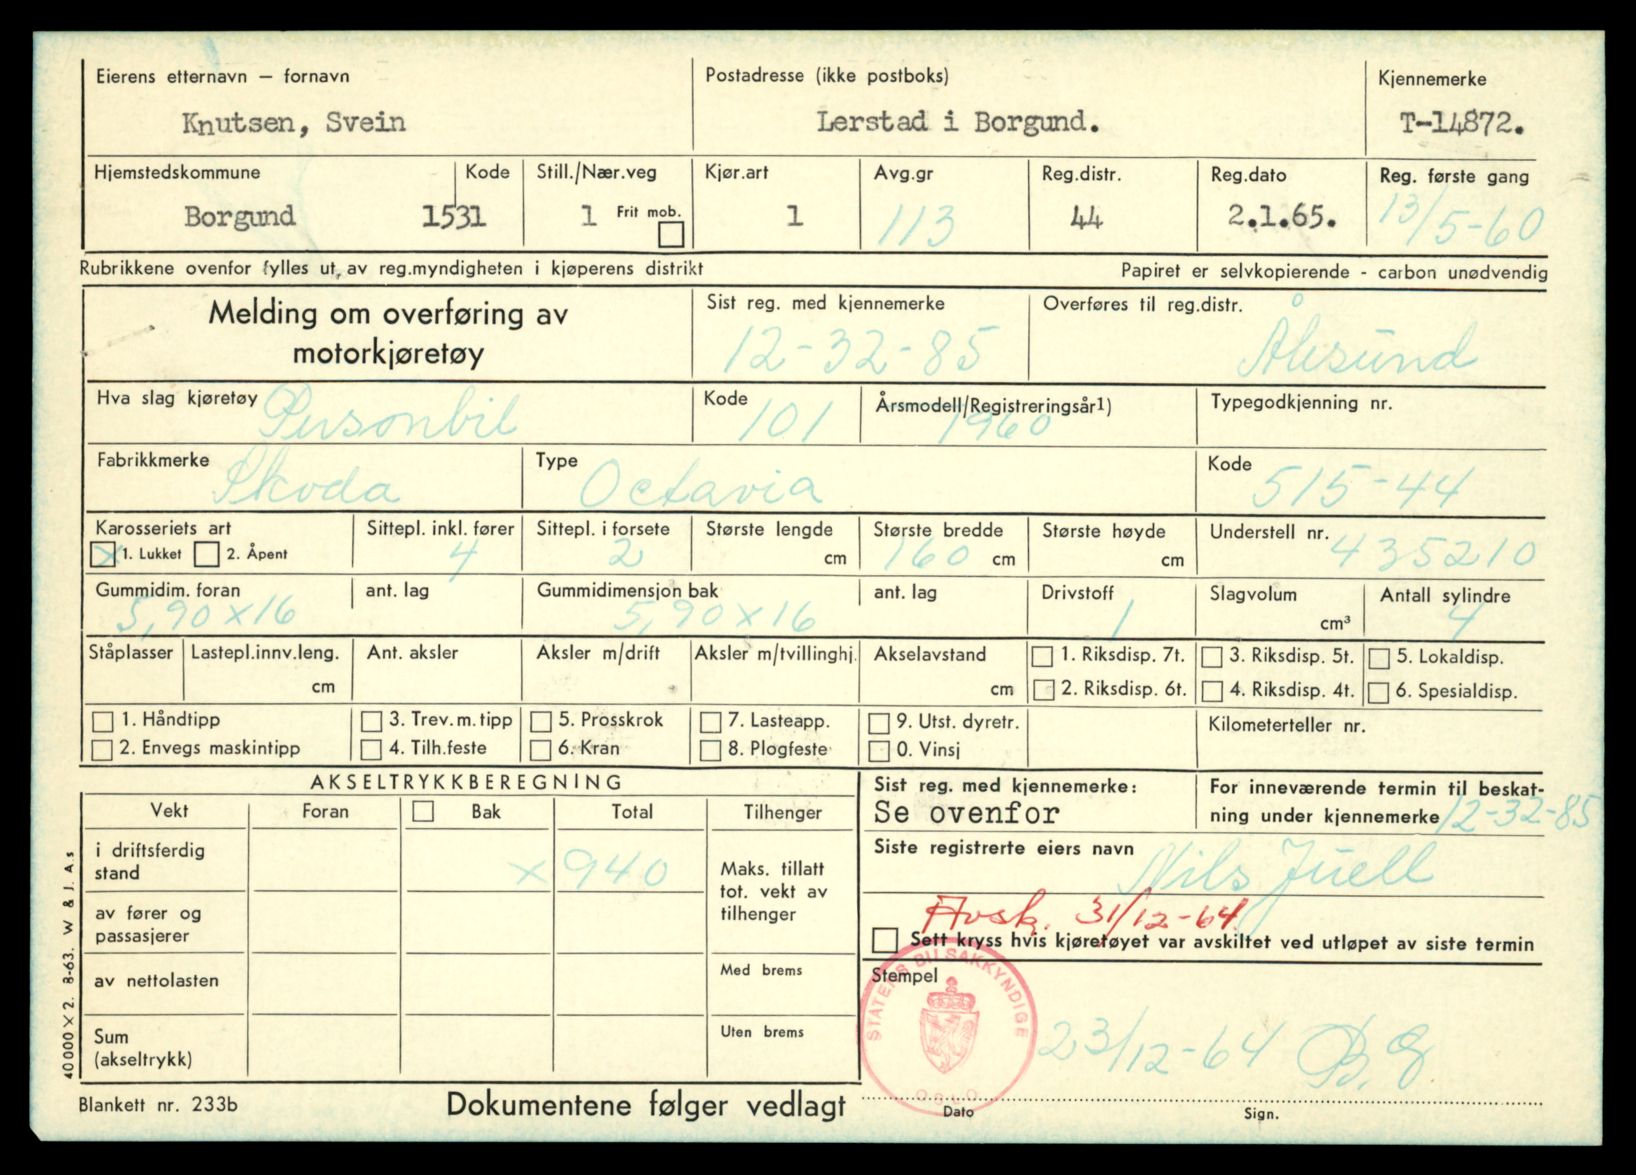 Eierens etternavn — fornavn
Knutsen, Svein
Postadresse (ikke postboks)
Lerstad i Borgund.
Kjennemerke
T-14872.
Hjemstedskommune
Borgund
Kode
1531
Still./Nær.veg
1 Frit mob.
Kjør.art
1
Avg.gr
113
Reg.distr.
44
Reg.dato
2.1.65.
Reg. første gang
13/5-60
Rubrikkene ovenfor fylles ut av reg.myndigheten i kjøperens distrikt
Papiret er selvkopierende - carbon unødvendig
Melding om overføring av
motorkjøretøy
Sist reg. med kjennemerke
12-32-85
Overføres til reg.distr.
Ålesund
Hva slag kjøretøy
Personbil
Kode
101
Årsmodell/Registreringsår1)
1960
Typegodkjenning nr.
Fabrikkmerke
Skoda
Type
Octavia
Kode
515-44
Karosseriets art
x 1. Lukket 2. Åpent
Sittepl. inkl. fører
4
Sittepl. i forsete
2
Største lengde
cm
Største bredde
160 cm
Største høyde
cm
Understell nr.
435210
Gummidim. foran
5,90 x 16
ant. lag
Gummidimensjon bak
5,90 x 16
ant. lag
Drivstoff
1
Slagvolum
cm³
Antall sylindre
4
Ståplasser
Lastepl.innv.leng.
cm
Ant. aksler
Aksler m/drift
Aksler m/tvillinghj.
Akselavstand
cm
1. Riksdisp. 7t.
2. Riksdisp. 6t.
3. Riksdisp. 5t.
4. Riksdisp. 4t.
5. Lokaldisp.
6. Spesialdisp.
1. Håndtipp
2. Envegs maskintipp
3. Trev.m.tipp
4. Tilh.feste
5. Prosskrok
6. Kran
7. Lasteapp.
8. Plogfeste
9. Utst. dyretr.
0. Vinsj
Kilometerteller nr.
AKSELTRYKKBEREGNING
Vekt
Foran
Bak
Total
Tilhenger
i driftsferdig
stand
x 940
Maks. tillatt
tot. vekt av
tilhenger
av fører og
passasjerer
av nettolasten
Med brems
Sum
(akseltrykk)
Uten brems
Sist reg. med kjennemerke:
Se ovenfor
For inneværende termin til beskat-
ning under kjennemerke 12-32-85
Siste registrerte eiers navn
Nils Juell
Avsk. 31/12-64
Sett kryss hvis kjøretøyet var avskiltet ved utløpet av siste termin
Stempel
STATENS BILSAKKYNDIGE
OSLO
23/12-64 B.G
Dato
Sign.
40000 x 2. 8-63. W & J. A s
Blankett nr. 233b
Dokumentene følger vedlagt